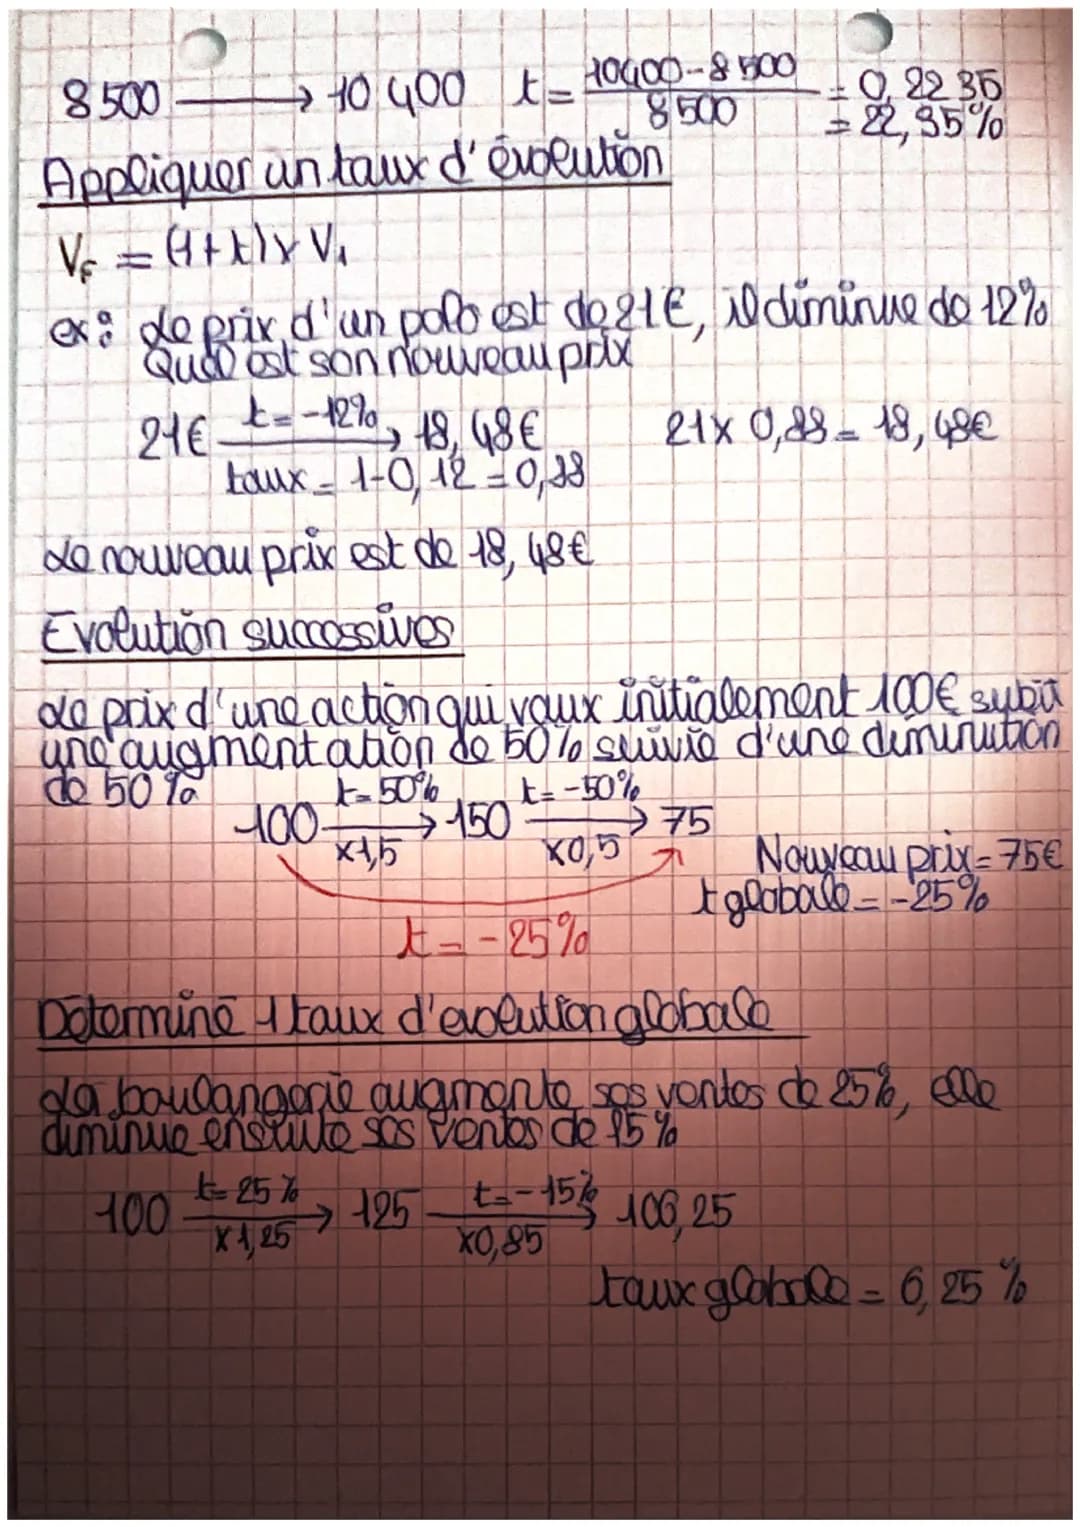 8 500 → 10 400 t = (10400-8 500)/8 500 = 0,2235
= 22,35%
Appliquer un taux d'évolution
VF = (1+t) x V1
ex : Le prix d'un polo est de 21€, il diminue de 12%
Quel est son nouveau prix
21€ t=-12% → 18,48€ 21 x 0,88 = 18,48€
taux = 1-0,12 = 0,88
Le nouveau prix est de 18,48€
Evolution successives
Le prix d'une action qui vaux initialement 100€ subit
une augmentation de 50% suivie d'une diminution
de 50%
100 t=50% → 150 t=-50% → 75
x1,5 x0,5
Nouveau prix = 75€
t globale = -25%
t = -25%
Déterminé 1 taux d'evolution globale
La boulangerie augmente ses ventes de 25%, elle
diminue ensuite ses ventes de 15%
100 t=25% → 125 t=-15% → 106,25
x1,25 x0,85
taux globale = 6,25 %